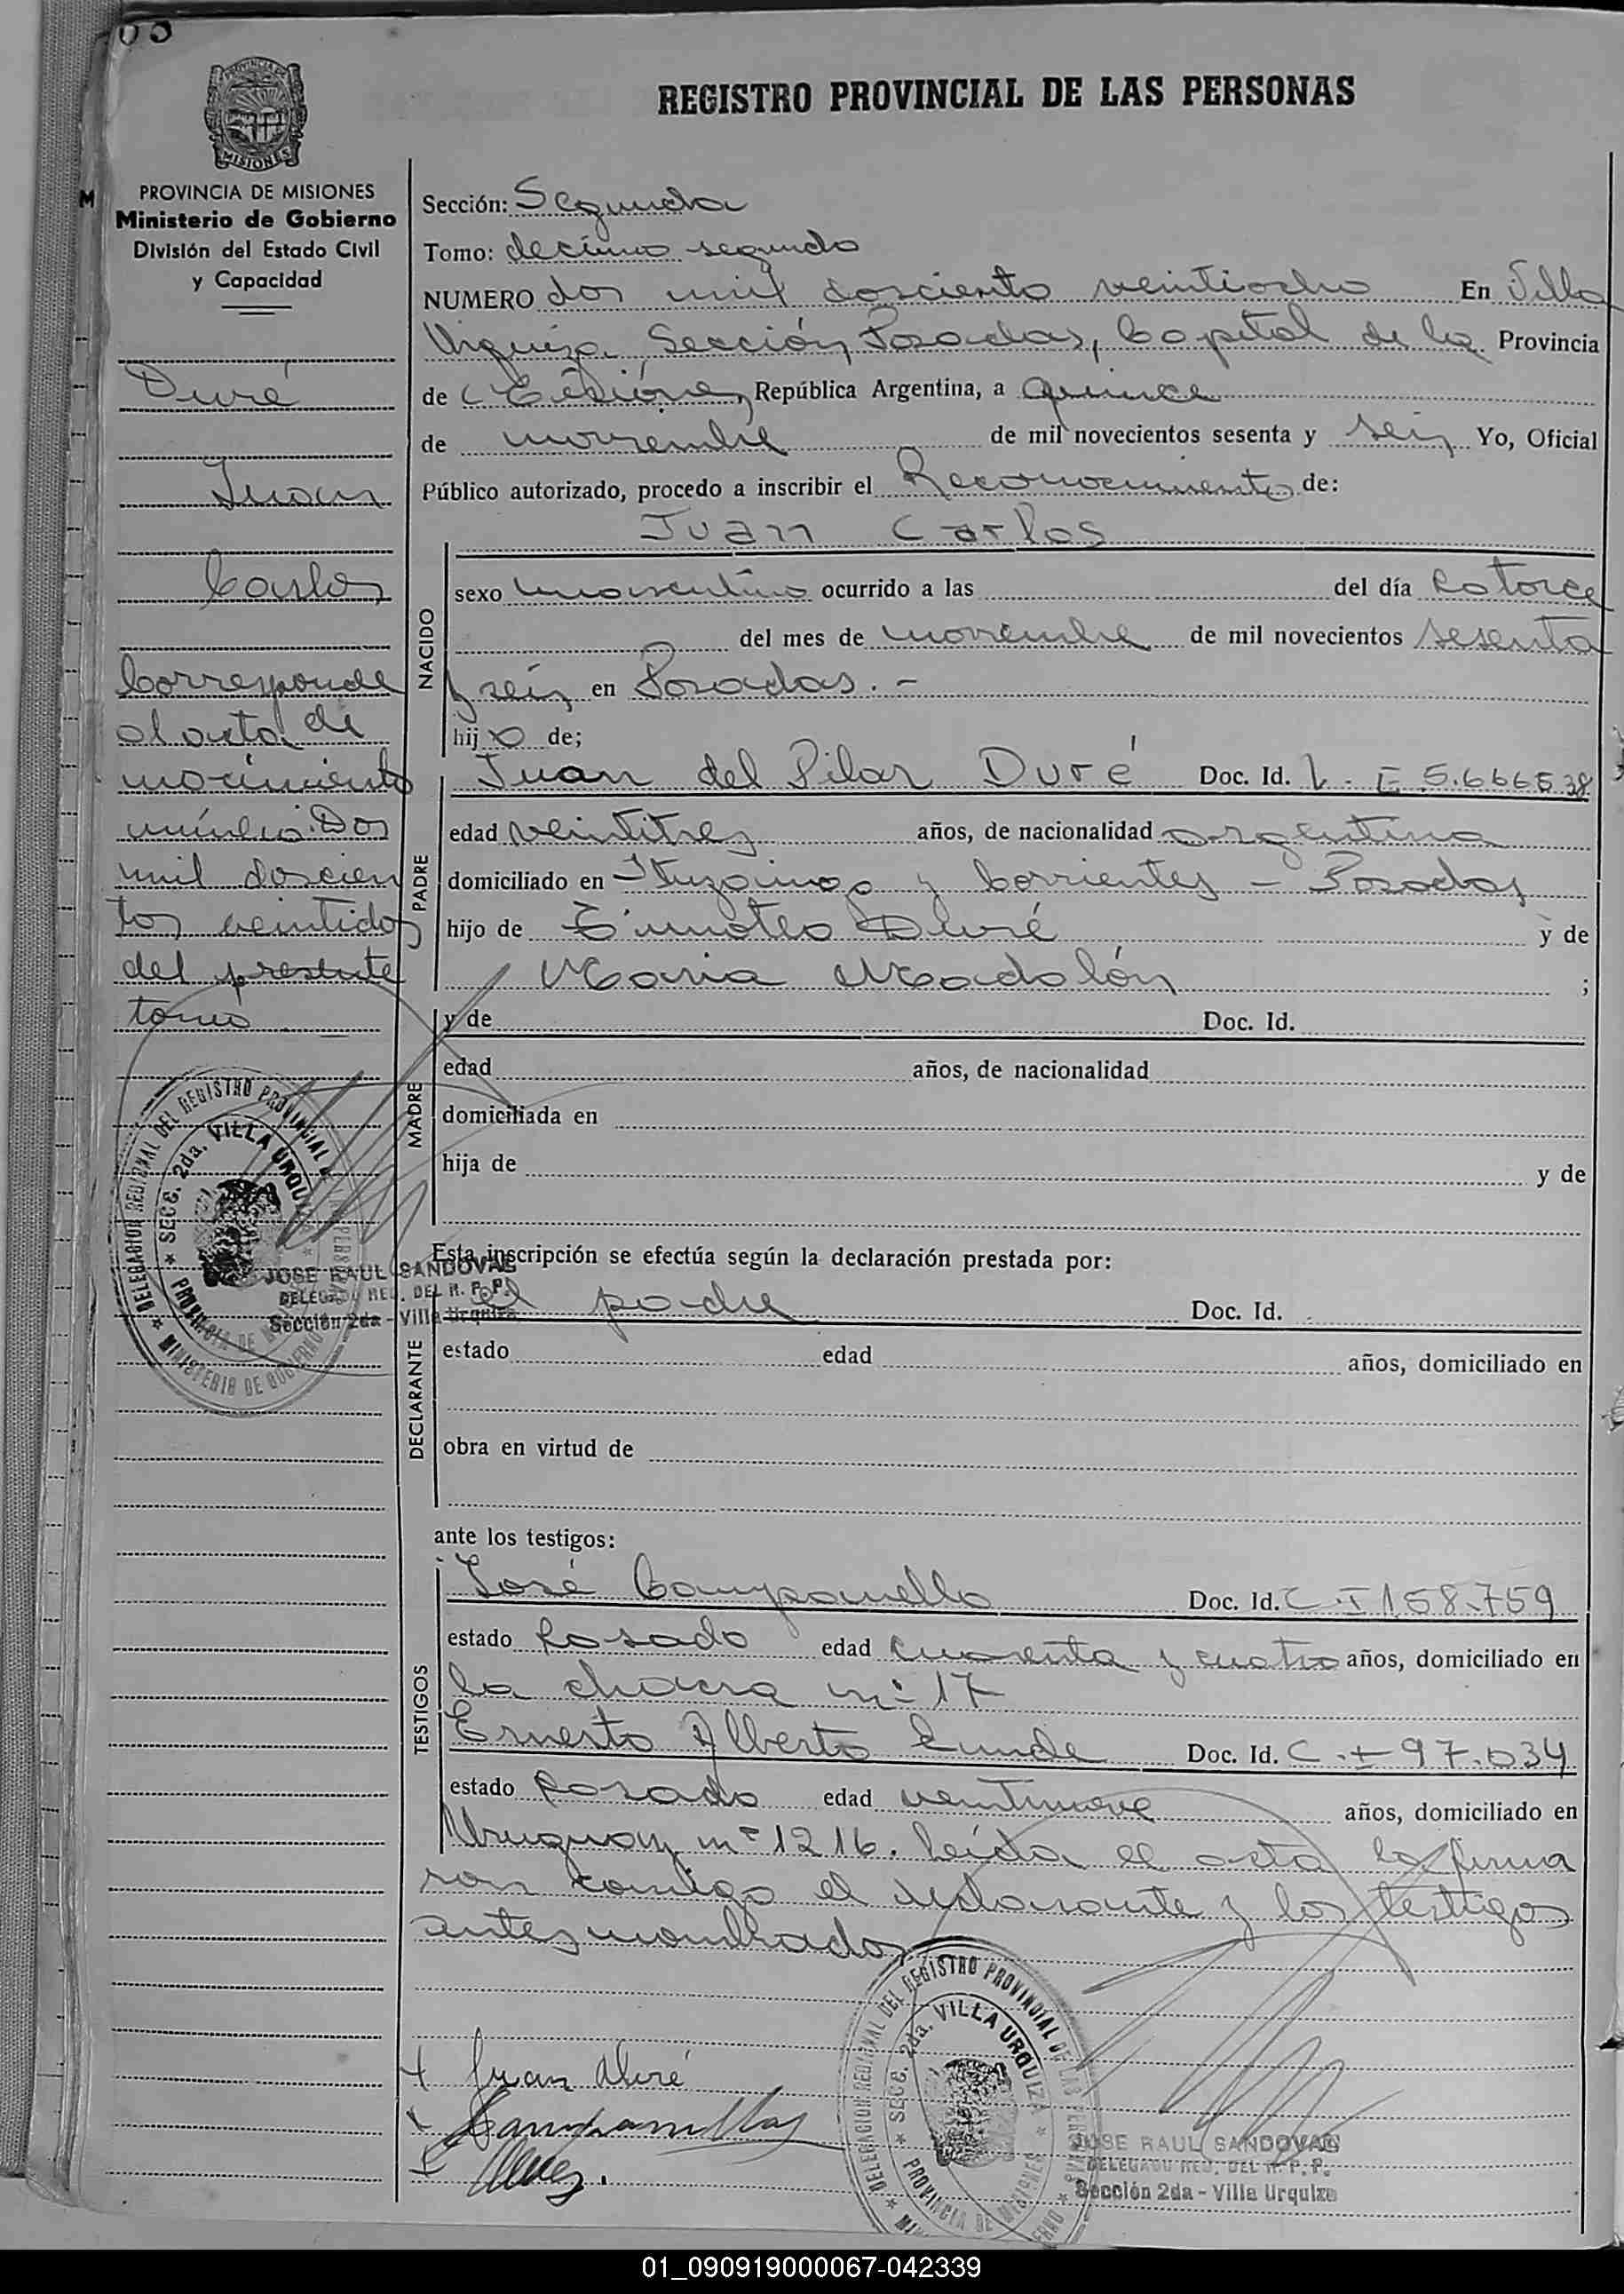 REGISTRO PROVINCIAL DE LAS PERSONAS
MISIONES
PROVINCIA DE MISIONES
Ministerio de Gobierno
División del Estado Civil
y Capacidad
Duré
Juan
Carlos
Corresponde
al acta de
nacimiento
número Dos
mil doscien
tos veintidos
del presente
tomo
DELEGACION REGIONAL DEL REGISTRO PROVINCIAL DE LAS PERSONAS
SECC. 2da. VILLA URQUIZA
PROVINCIA DE MISIONES
MINISTERIO DE GOBIERNO
JOSE RAUL SANDOVAL
DELEGADO REG. DEL R. P. P.
Sección 2da - Villa Urquiza
Sección: Segunda
Tomo: decimo segundo
NUMERO dos mil dosciento veintiocho En Villa
Urquiza Sección Posadas, Capital de la Provincia
de Misiones República Argentina, a quince
de noviembre de mil novecientos sesenta y seis Yo, Oficial
Público autorizado, procedo a inscribir el Reconocimiento de:
Juan Carlos
NACIDO
sexo masculino ocurrido a las del día Catorce
del mes de noviembre de mil novecientos sesenta
y seis en Posadas. -
hijo de;
PADRE
Juan del Pilar Duré Doc. Id. L. E 5.666538
edad veintitres años, de nacionalidad argentina
domiciliado en Ituzaingo y Corrientes - Posadas
hijo de Timoteo Duré y de
Maria Madalón ;
MADRE
y de Doc. Id.
edad años, de nacionalidad
domiciliada en
hija de y de
Esta inscripción se efectúa según la declaración prestada por:
DECLARANTE
el padre Doc. Id.
estado edad años, domiciliado en
obra en virtud de
ante los testigos:
TESTIGOS
José Campanello Doc. Id. C. I 158.759
estado Casado edad cuarenta y cuatro años, domiciliado en
la chacra nº 17
Ernesto Alberto Doc. Id. C. I 97.034
estado Casado edad veintinueve años, domiciliado en
Uruguay nº 1216. Leída el acta la firma
ron conmigo el declarante y los testigos
antes nombrados
Juan Duré
DELEGACION REGIONAL DEL REGISTRO PROVINCIAL DE LAS PERSONAS
SECC. 2da. VILLA URQUIZA
PROVINCIA DE MISIONES
JOSE RAUL SANDOVAL
DELEGADO REG. DEL R. P. P.
Sección 2da - Villa Urquiza
01_090919000067-042339